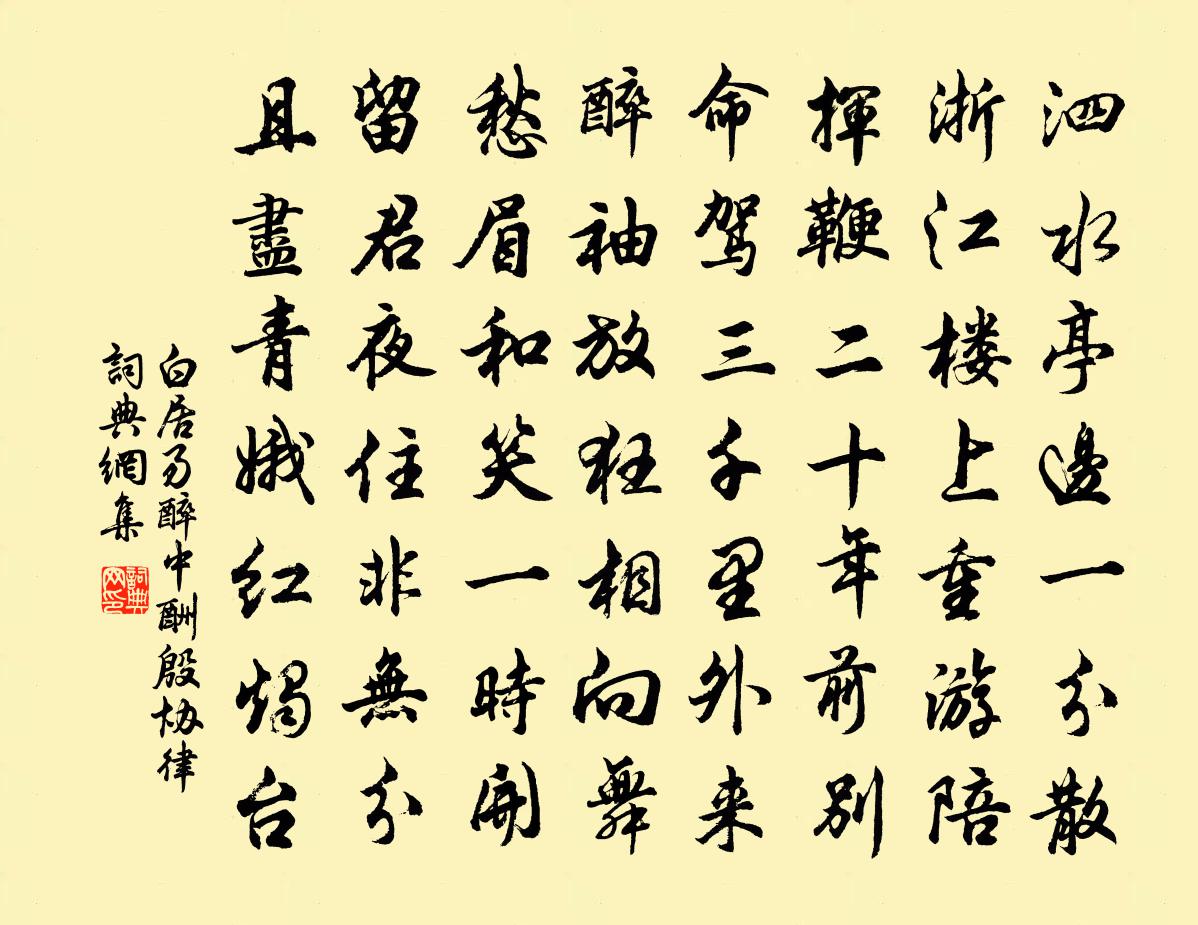 泗水亭邊一分散
浙江楼上重游陪
揮鞭二十年前別
命驾三千里外来
醉袖放狂相向舞
愁眉和笑一時開
留君夜住非無分
且盡青娥红燭台
白居易醉中酬殷协律
詞典網集
詞典
网印